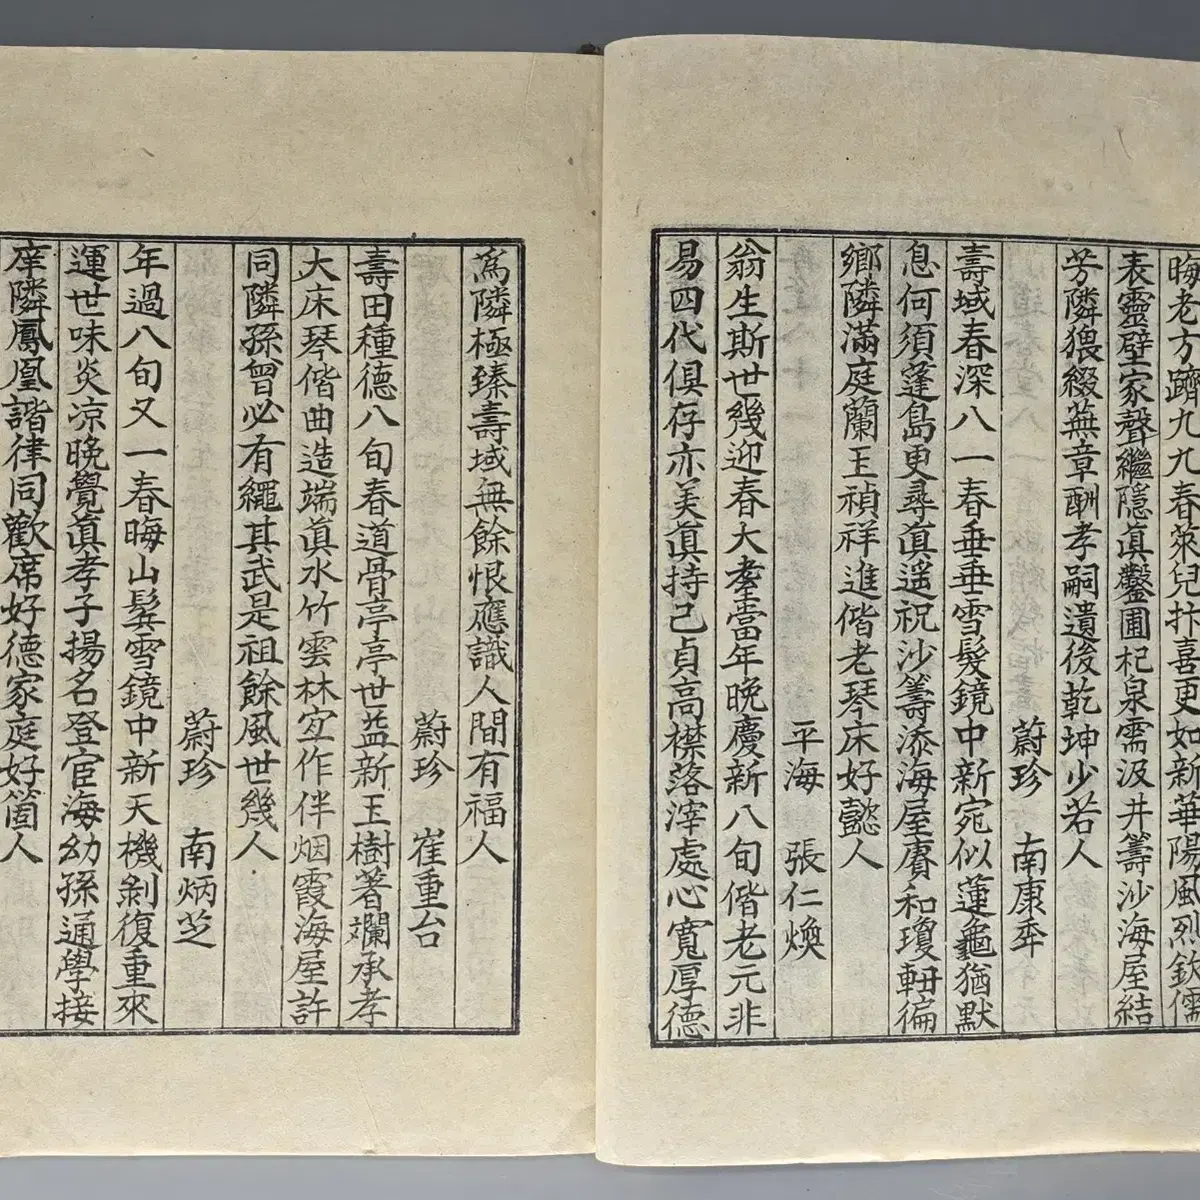 晦老方躋九九春萊兒抃喜更如新華陽風烈欽儒
表靈壁家聲繼隱眞鑿圃杞泉需汲井籌沙海屋結
芳隣猥綴蕪章酬孝嗣遺後乾坤少若人
蔚珍 南康秊
壽域春深八一春垂垂雪髮鏡中新宛似蓮龜猶默
息何須蓬島更尋眞遥祝沙籌添海屋賡和瓊軸徧
鄉隣滿庭蘭玉禎祥進偕老琴床好懿人
平海 張仁煥
翁生斯世幾迎春大耋當年晩慶新八旬偕老元非
易四代俱存亦美眞持己貞高襟落滓處心寬厚德
爲隣極臻壽域無餘恨應識人間有福人
蔚珍 崔重台
壽田種德八旬春道骨亭亭世益新玉樹著斕承孝
大床琴偕曲造端眞水竹雲林定作伴烟霞海屋許
同隣孫曾必有繩其武是祖餘風世幾人
蔚珍 南炳芝
年過八旬又一春晦山髮雪鏡中新天機剝復重來
運世味炎凉晩覺眞孝子揚名登宦海幼孫通學接
庠隣鳳凰諧律同歡席好德家庭好箇人